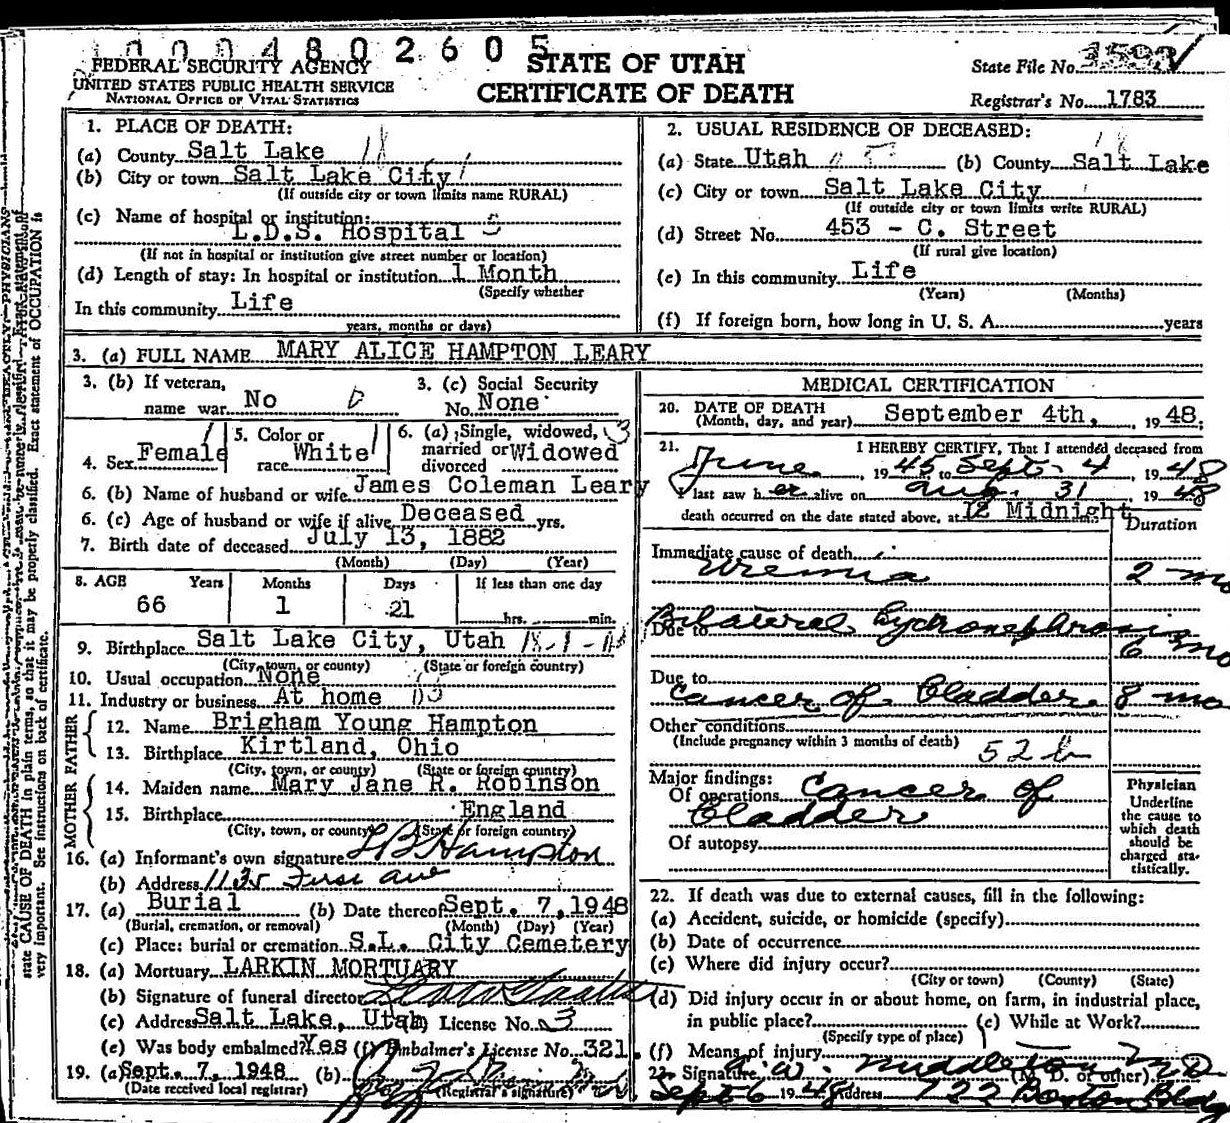 0004802605
FEDERAL SECURITY AGENCY
UNITED STATES PUBLIC HEALTH SERVICE
NATIONAL OFFICE OF VITAL STATISTICS
STATE OF UTAH
CERTIFICATE OF DEATH
State File No.
Registrar's No. 1783
1. PLACE OF DEATH:
(a) County Salt Lake 18
(b) City or town Salt Lake City
(If outside city or town limits name RURAL)
(c) Name of hospital or institution:
L.D.S. Hospital
(If not in hospital or institution give street number or location)
(d) Length of stay: In hospital or institution 1 Month
(Specify whether
In this community Life
years, months or days)
2. USUAL RESIDENCE OF DECEASED:
(a) State Utah (b) County Salt Lake
(c) City or town Salt Lake City
(If outside city or town limits write RURAL)
(d) Street No. 453 - C. Street
(If rural give location)
(e) In this community Life
(Years) (Months)
(f) If foreign born, how long in U. S. A. years
3. (a) FULL NAME MARY ALICE HAMPTON LEARY
3. (b) If veteran, name war No
3. (c) Social Security No. None
4. Sex Female
5. Color or race White
6. (a) Single, widowed, married or divorced Widowed
6. (b) Name of husband or wife James Coleman Leary
6. (c) Age of husband or wife if alive Deceased yrs.
7. Birth date of deceased July 13, 1882
(Month) (Day) (Year)
8. AGE Years Months Days If less than one day
66 1 21 hrs. min.
9. Birthplace Salt Lake City, Utah
(City, town, or county) (State or foreign country)
10. Usual occupation None
11. Industry or business At home
FATHER
12. Name Brigham Young Hampton
13. Birthplace Kirtland, Ohio
(City, town, or county) (State or foreign country)
MOTHER
14. Maiden name Mary Jane R. Robinson
15. Birthplace England
(City, town, or county) (State or foreign country)
16. (a) Informant's own signature Hampton
(b) Address 1135 First ave
17. (a) Burial (b) Date thereof Sept. 7, 1948
(Burial, cremation, or removal) (Month) (Day) (Year)
(c) Place: burial or cremation S.L. City Cemetery
18. (a) Mortuary LARKIN MORTUARY
(b) Signature of funeral director
(c) Address Salt Lake, Utah (d) License No. 3
(e) Was body embalmed? Yes (f) Embalmer's License No. 321
19. (a) Sept. 7, 1948 (b)
(Date received local registrar) (Registrar's signature)
MEDICAL CERTIFICATION
20. DATE OF DEATH
(Month, day, and year) September 4th, 1948
21. I HEREBY CERTIFY, That I attended deceased from
June 1945 to Sept. 4, 1948
I last saw her alive on Aug. 31, 1948
death occurred on the date stated above, at 12 Midnight
Duration
Immediate cause of death
Uremia 2 mo
Due to Bilateral hydronephrosis 6 mo
Due to
Cancer of Bladder 8 mo
Other conditions
(Include pregnancy within 3 months of death)
52 b
Major findings:
Of operations Cancer of
Bladder
Of autopsy
Physician
Underline
the cause to
which death
should be
charged sta-
tistically.
22. If death was due to external causes, fill in the following:
(a) Accident, suicide, or homicide (specify)
(b) Date of occurrence
(c) Where did injury occur?
(City or town) (County) (State)
(d) Did injury occur in or about home, on farm, in industrial place,
in public place? (e) While at Work?
(Specify type of place)
(f) Means of injury
23. Signature A. W. Middleton MD
(M. D. or other)
Sept 6 1948 Address 722 Boston Bldg
state CAUSE OF DEATH in plain terms, so that it may be properly classified. Exact statement of OCCUPATION is
very important. See instructions on back of certificate.